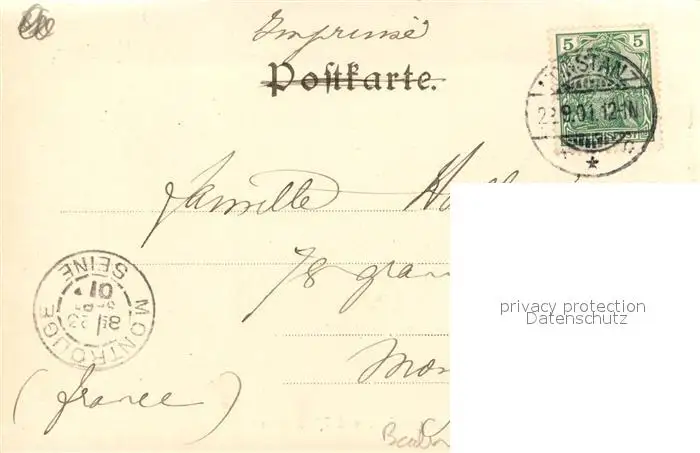 Imprimé
Postkarte.
5 5
KONSTANZ
9.01.12-1N
Famille
78 gran
Mon
MONTROUGE
SEINE
01
(france)
privacy protection
Datenschutz